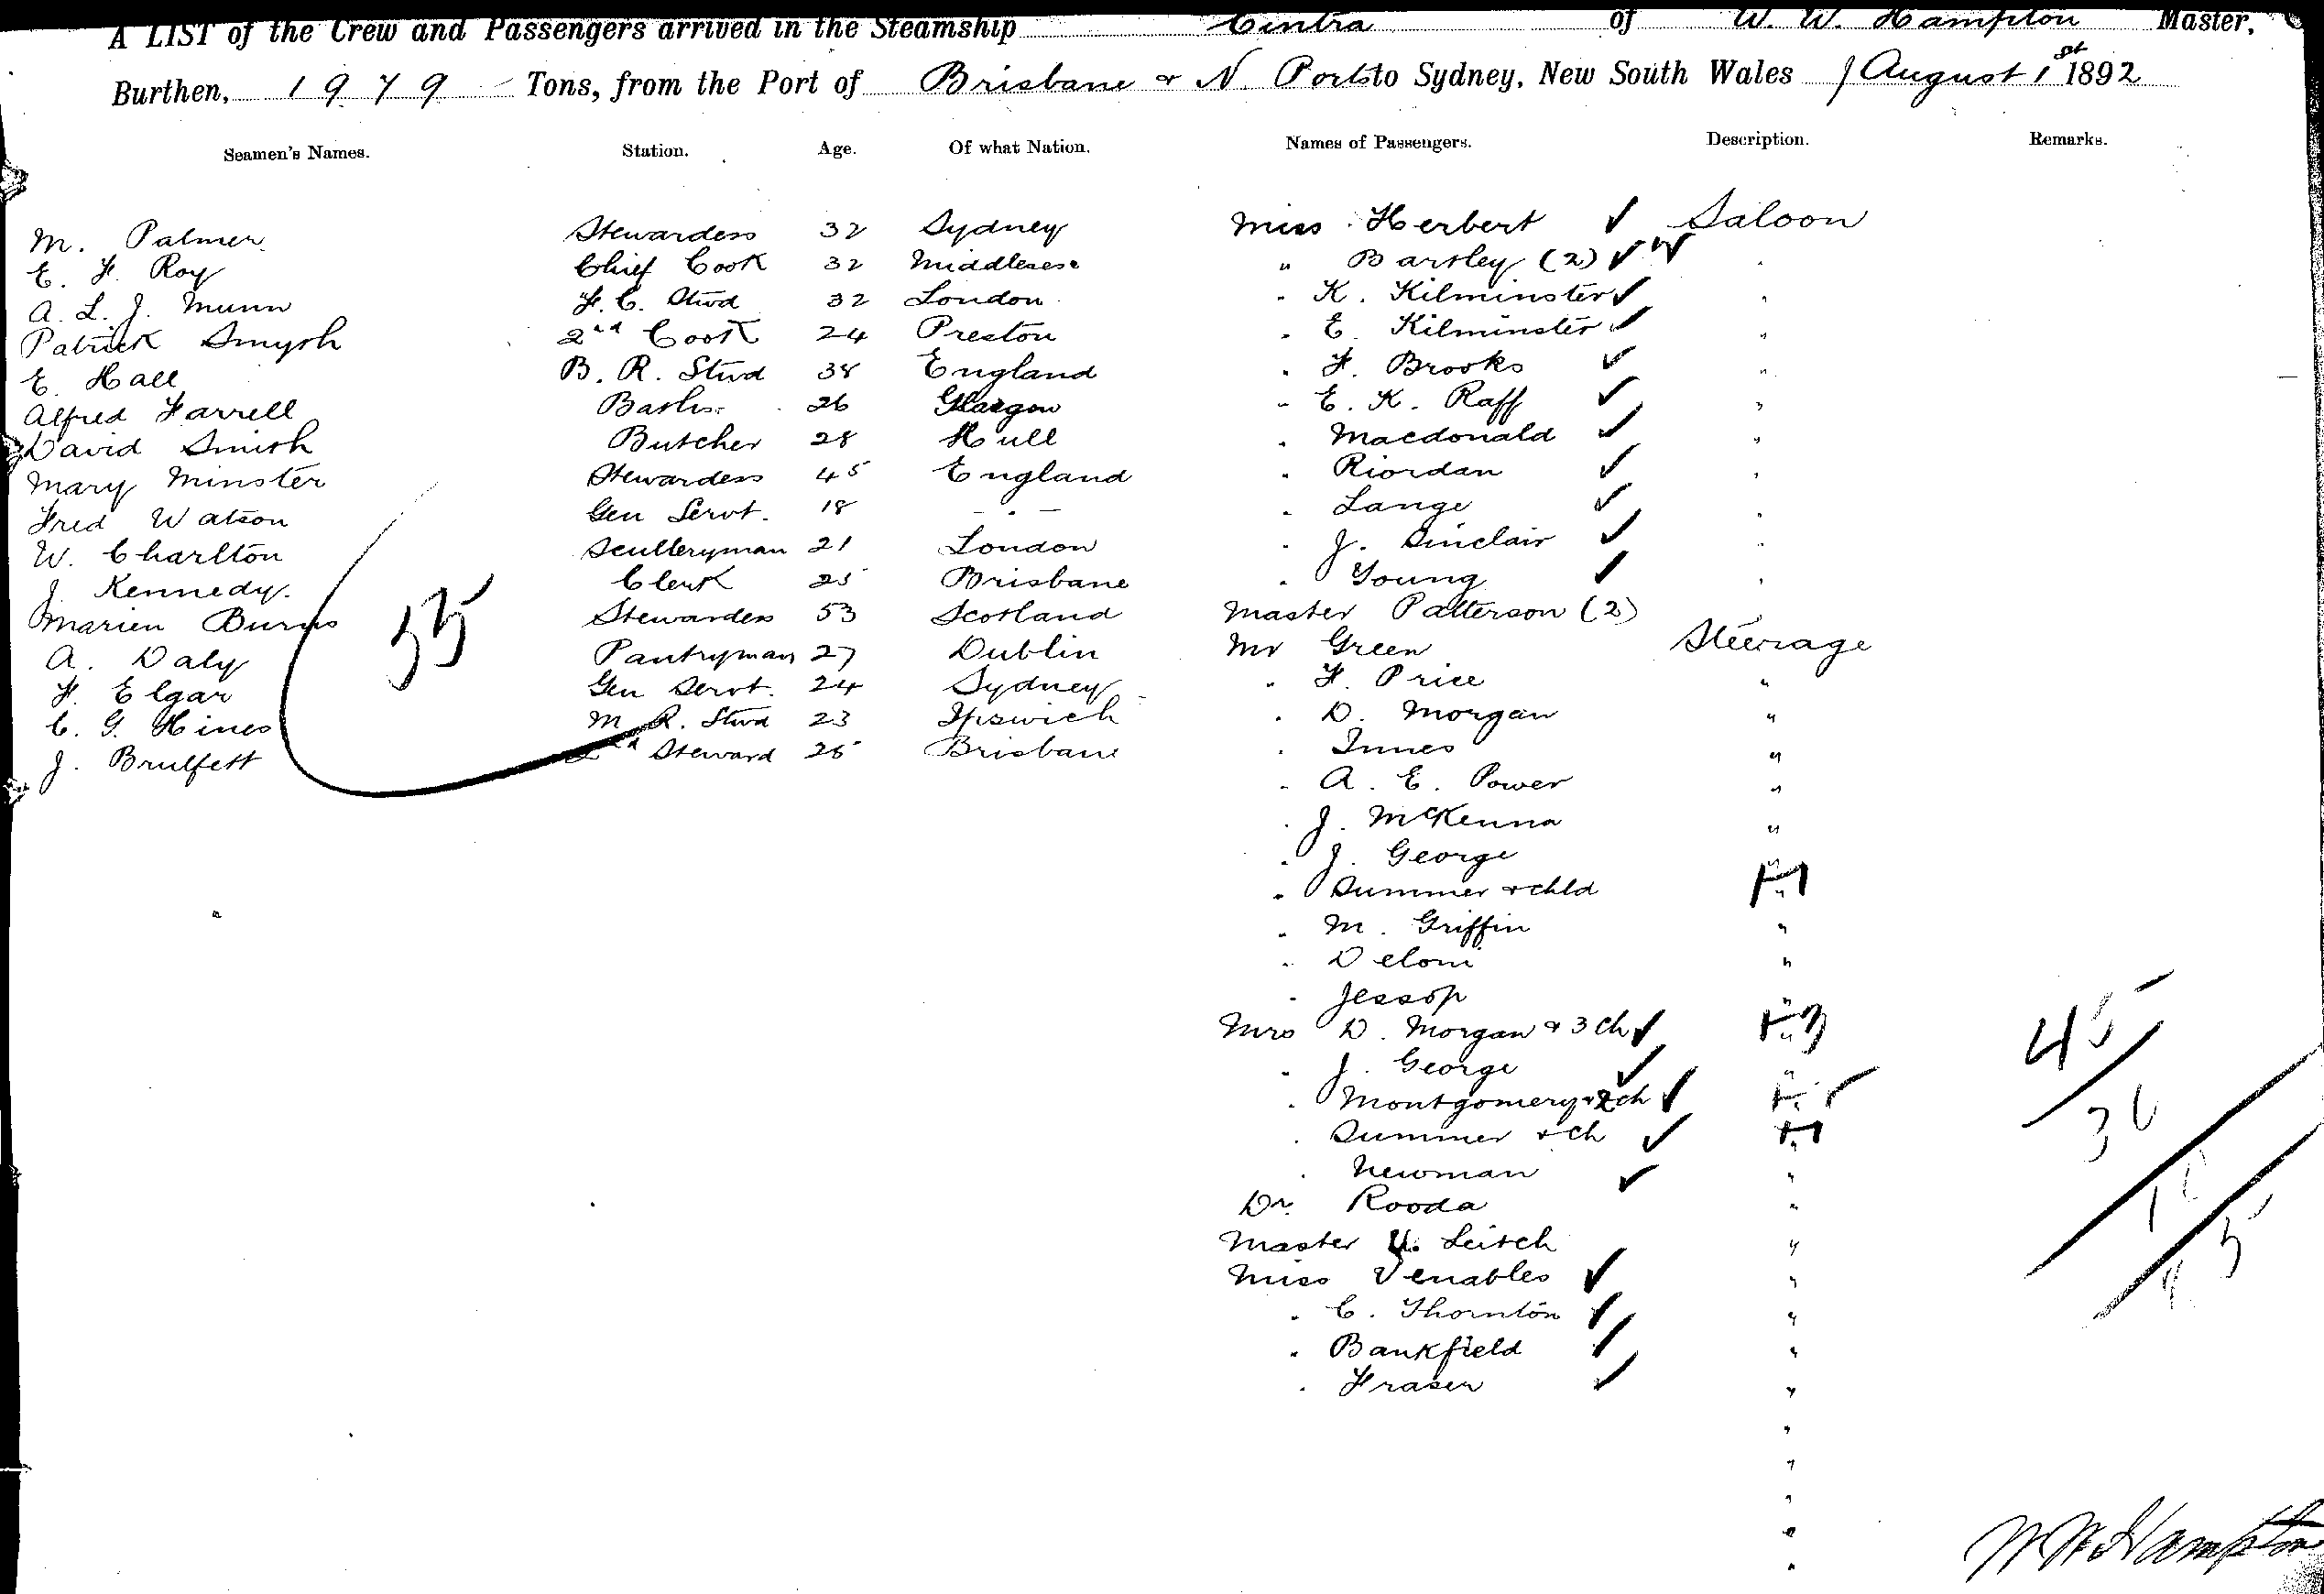 A LIST of the Crew and Passengers arrived in the Steamship Cintra of W. W. Hampton Master,
Burthen, 1979 Tons, from the Port of Brisbane & N. Ports to Sydney, New South Wales 1 August 1st 1892
Seamen's Names. Station. Age. Of what Nation. Names of Passengers. Description. Remarks.
M. Palmer Stewardess 32 Sydney
E. F. Roy Chief Cook 32 Middlesese
A. L. J. Munn F. C. Stwd 32 London
Patrick Smyth 2nd Cook 24 Preston
E. Hall B. R. Stwd 38 England
Alfred Farrell 26 Glasgow
David Smith Butcher 28 Hull
Mary Minster Stewardess 45 England
Fred Watson Gen Servt. 18 - . -
W. Charlton Sculleryman 21 London
J. Kennedy. Clerk 25 Brisbane
Marien Burns Stewardess 53 Scotland
A. Daly Pantryman 27 Dublin
F. Elgar Gen Servt. 24 Sydney
C. G. Hines M. R. Stwd 23 Ipswich
J. Brulfett 2nd Steward 25 Brisbane
55
Miss Herbert ✓ Saloon
" Bartley (2) ✓ ✓ "
" K. Kilminster ✓ "
" E. Kilminster ✓ "
" F. Brooks ✓ "
" E. K. Raff ✓ "
" Macdonald ✓ "
" Riordan ✓ "
" Lange ✓ "
" J. Sinclair ✓ "
" Young ✓ "
Master Patterson (2) "
Mr Green Steerage
" F. Price "
" D. Morgan "
" Innes "
" A. E. Power "
" J. McKenna "
" J. George "
" Summer & chld " +1
" M. Griffin "
" Deloni "
" Jessop "
Mrs D. Morgan & 3 ch ✓ " +3
" J. George ✓ "
" Montgomery & 2 ch ✓ "
" Summer & ch ✓ " +1
" Newman ✓ "
Dr. Rooda "
Master Leitch "
Miss Venables ✓ "
" C. Thornton ✓ "
" Bankfield ✓ "
" Fraser ✓ "
45
36
W W Hampton